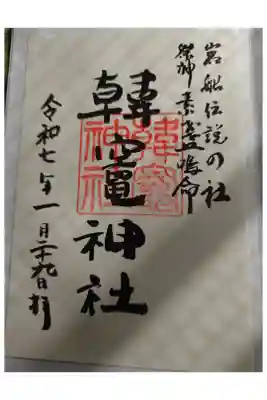 岩船伝説の社
祭神素盞嗚命
韓竈神社
韓竈
神社
令和七年一月二十九日拝